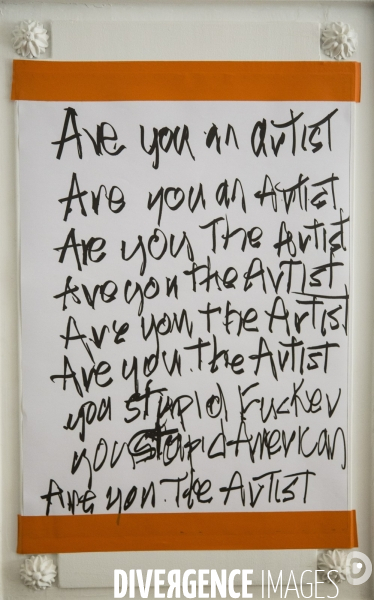 Are you an artist
Are you an Artist
Are you The Artist
Are you the Artist
Are you the Artist
Are you the Artist
you stupid Fucker
you stupid American
Are you The Artist
DIVERGENCE IMAGES